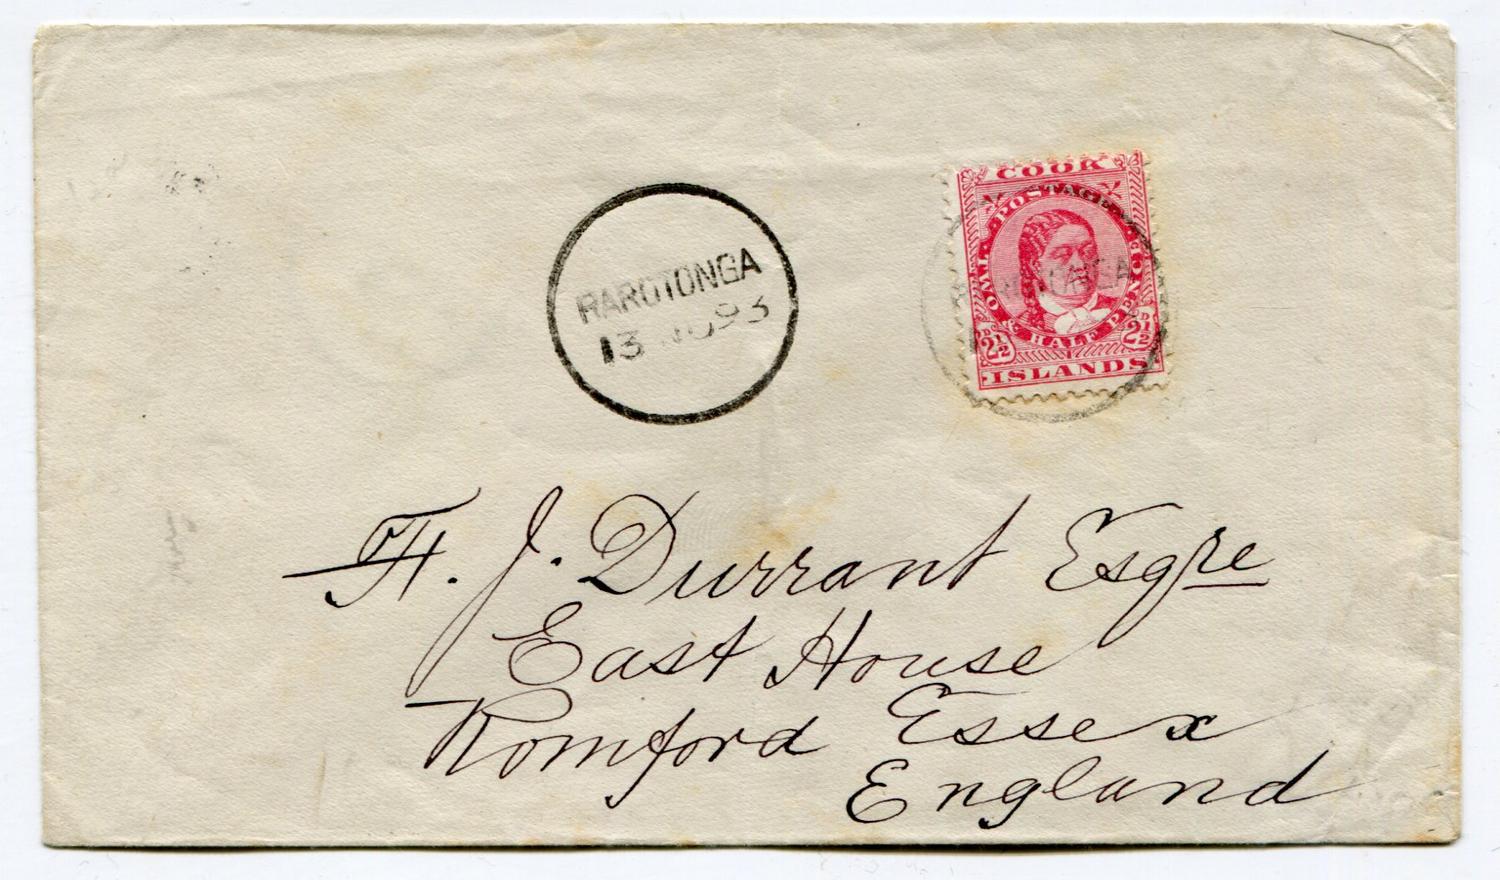 RAROTONGA
13 93
COOK
POSTAGE
TWO & HALF PENCE
2½D 2½D
ISLANDS
RAROTONGA
H. J. Durrant Esqre
East House
Romford Essex
England